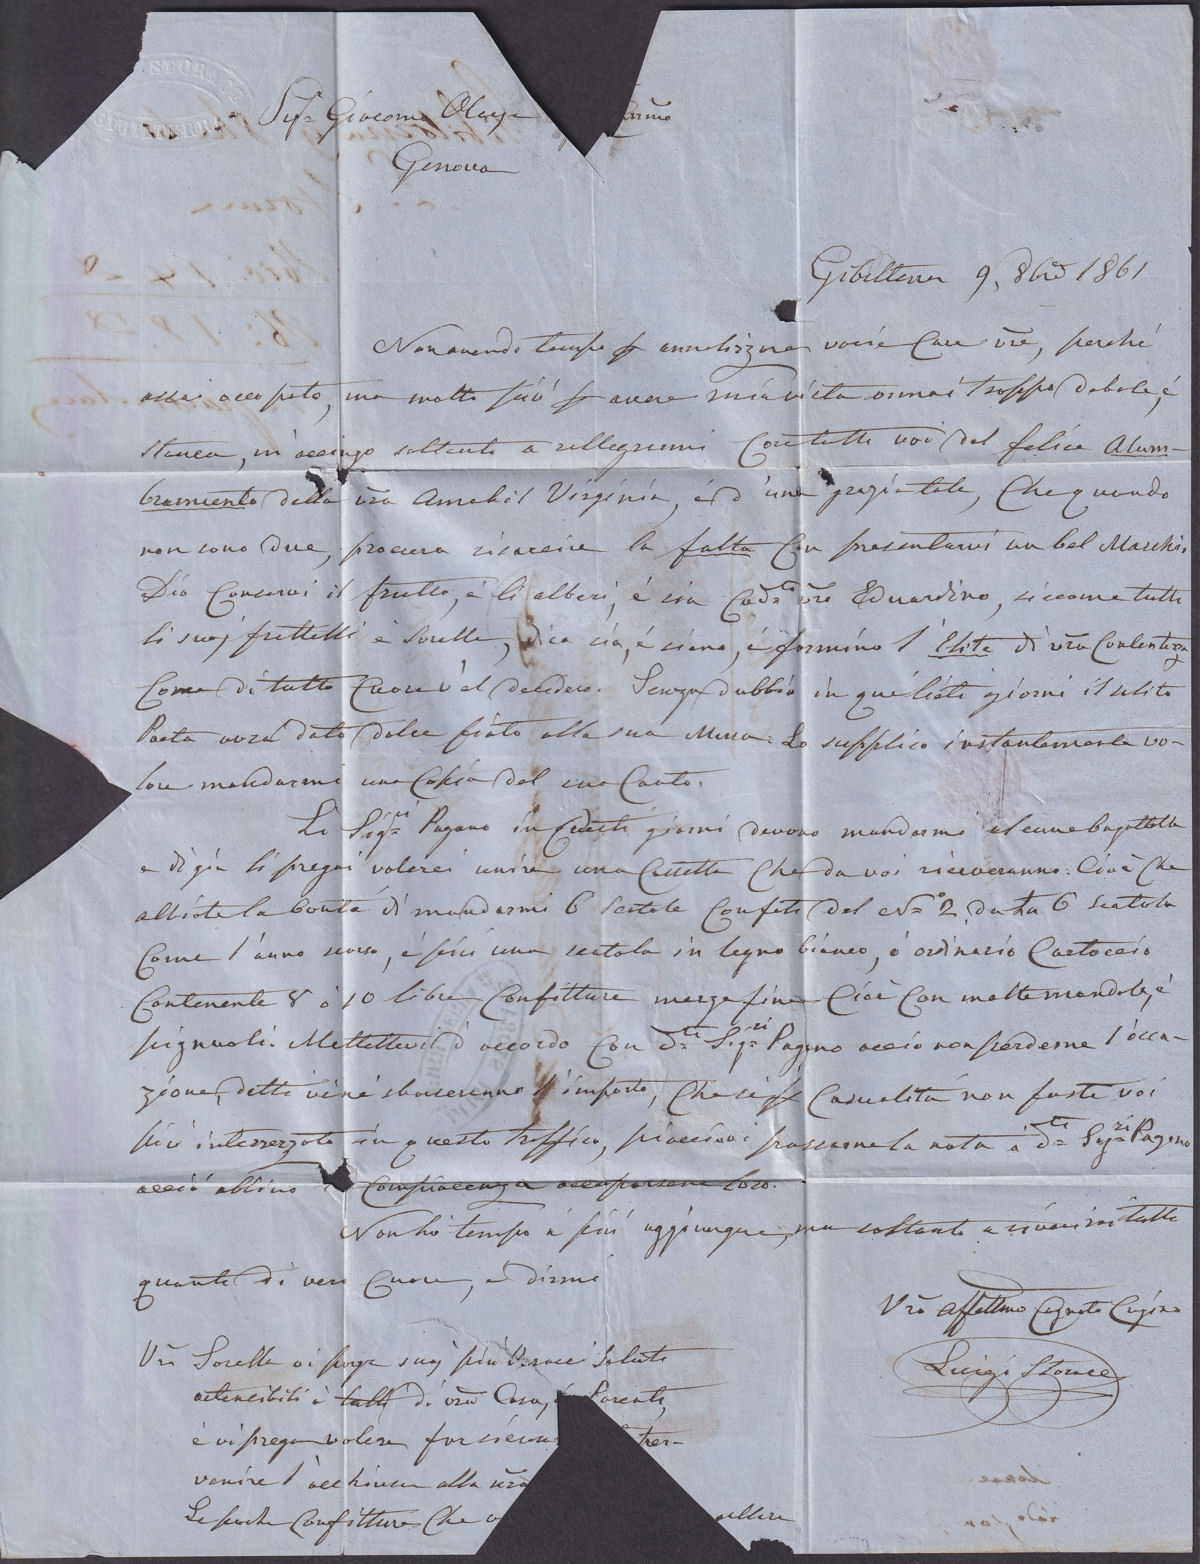 Sigr Giacomo
Genova
Gibilterra 9. 8bre 1861
Non avendo tempo p analizzare vostre Care vre, perché
assai occupato, ma molto più p avere mia vista ormai troppo debole, é
stanca, m'accingo soltanto a rallegrarmi Con tutti voi del felice Alum-
bramiento della vra Amabil Virginia, é d'una grazia tale, Che quando
non sono due, procura risarcire la falta Con presentarvi un bel Maschio.
Dio Conservi il frutto, é li alberi, é sia Codto vre Eduardino, siccome tutti
li suoj frattelli é Sorelle, dico sia, é siano, é formino l'Elite di vra Contentezza
Come di tutto Cuore v'el desidero. Senza dubbio in que' lieti giorni il solito
Poeta avrà dato dolce fiato alla sua Musa: Lo supplico instantemente vo-
ler mandarmi una Copia del suo Canto.
Li Sigri Pagano in giorni devono mandarmi alcune bagattele
e di già li pregai volerci unire una Cassetta Che da voi riceveranno: Cioè Che
abbiate la bontà di mandarmi 6 Scatole Confeti del No 2, 6 Scatole
Come l'anno scorso, é più una scatola in legno bianco, ó ordinario Cartoccio
Contenente 8 ó 10 libre Confitture mezzefine Cioè Con molte mandole, é
pignuoli. Mettettevi d'accordo Con dti Sigri Pagano acciò non perderne l'occa-
zione, detti ve ne sborseranno l'importo, Che se p Casualità non foste voi
più interrezzato in questo traffico, piacciavi passarne la nota á dti Sigri Pagano
acciò abbino Compiacenza occuparsene loro.
Non hó tempo á più aggiungere, ma soltanto a riverirvi tutti
quanti di vero Cuore, e dirmi
Vro Affettmo Cognato Cugino
Luigi Storace
Vra Sorella vi porge suoj più Veraci Saluti
ostensibili á tutti di vra Casa, é Parenti,
é vi prega volere far
venire l'acchiusa alla vra
Le poche Confitture Che